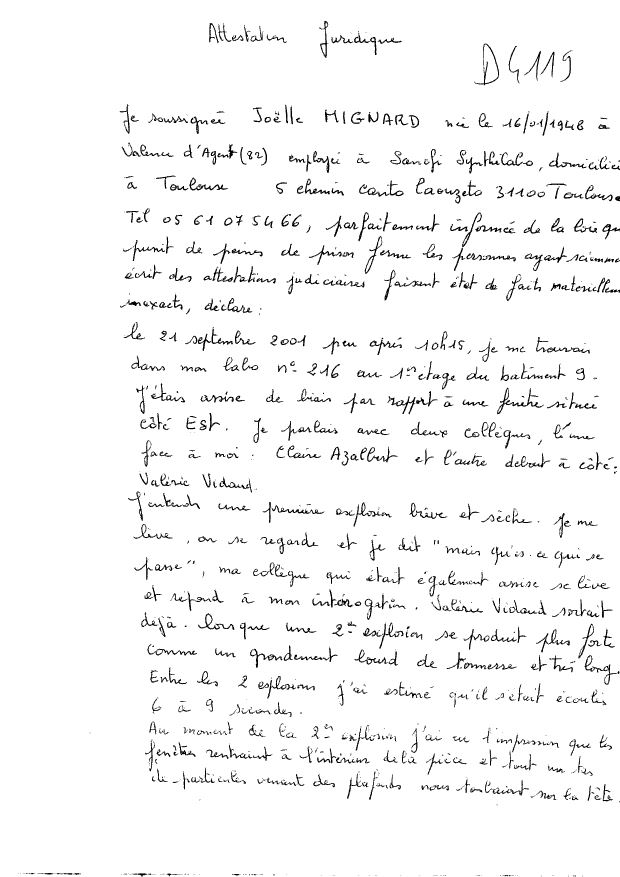 Attestation Juridique
D4119
Je soussignée Joëlle MIGNARD née le 16/01/1948 à
Valence d'Agent (82) employée à Sanofi Synthélabo, domicilié
à Toulouse 5 chemin canto laouzeto 31100 Toulouse
Tel 05 61 07 54 66, parfaitement informée de la loie qu
punit de peines de prison ferme les personnes ayant sciemme
écrit des attestations judiciaires faisant état de faits matérielleme
inexacts, déclare :
le 21 septembre 2001 peu après 10h15, je me trouvais
dans mon labo n° 216 au 1er étage du batiment 9.
J'étais assise de biais par rapport à une fenêtre située
côté Est. Je parlais avec deux collègues, l'une
face à moi : Claire Azalbert et l'autre debout à côté :
Valérie Vidaud.
J'entends une première explosion brève et sèche. Je me
lève, on se regarde et je dit "mais qu'es. ce qui se
passe", ma collègue qui était également assise se lève
et répond à mon intérogation. Valérie Vidaud sortait
dejà. lorsque une 2em explosion se produit plus forte
comme un grondement lourd de tonnesse et très long
Entre les 2 esplosions j'ai estimé qu'il s'était écoulés
6 à 9 secondes.
Au moment de la 2em explosion j'ai eu l'impression que les
fenêtres rentraient à l'intérieur de la pièce et tout un tas
de particules venant des plafonds nous tombaient sur la tête.